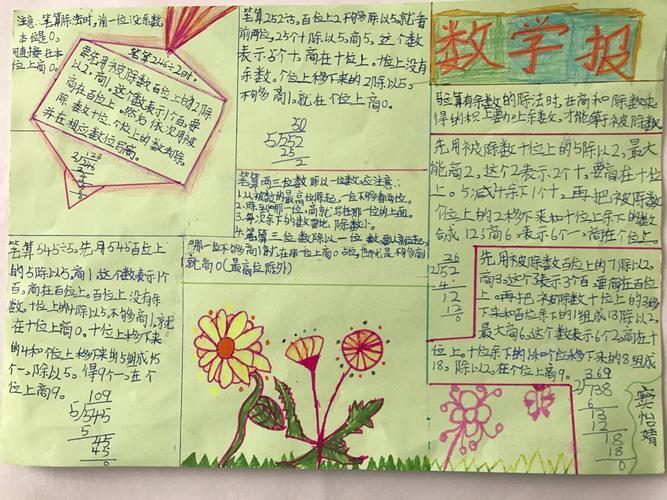 注意:笔算除法时,前一位没余数,
本位是0,
可直接在本
位上商0。
笔算246÷2时,
要先用被除数百位上的2除
以2,商1,这个数表示1个百,要
商在百位上。然后依次用被
除数十位、个位上的数去除,
并在相应数位写商。
123
2√246
笔算252÷5,百位上2不够除以5,就看
前两位,25个十除以5,商5,这个数
表示5个十,商在十位上。十位上没有
余数。个位上移下来的2除以5,
不够商1,就在个位上商0。
50
5√252
25
2
数学报
验算有余数的除法时,在商和除数乘
得的积上要加上余数,才能等于被除数
先用被除数十位上的5除以2,最大
能商2,这个2表示2个十,要商在十位
上。5减4余下1个十,再把被除数
个位上的2移下来和十位上余下的数
合成12,3商6,表示6个一,商在个位上。
26
2√52
4
12
12
0
笔算两三位数除以一位数,应注意:
1.从被数的最高位除起,一位不够看两位。
2.除到哪一位,商就写在那一位的上面。
3.每次余下的数要比除数小。
4.笔算三位数除以一位数
就商0(最高位除外)
笔算545÷5,先用545百位上
的5除以5,商1,这个数表示1个
百,商在百位上。百位上没有余
数,十位上的4除以5,不够商1,就
在十位上商0。十位上移下来
的4和个位上移下来的5组成45
个一,除以5。得9个一,在个
位上商9。
109
5√545
5
45
45
0
先用被除数百位上的7除以2,
商3,这个3表示3个百,要商在百位
上。再把被除数十位上的3移
下来和百位余下的1组成13除以2,
最大商6,这个数表示6个十,商在十
位上。十位余下的1和个位移下来的8组成
18。除以2,在个位上商9。
369
2√738
6
13
12
18
18
0
怡婧